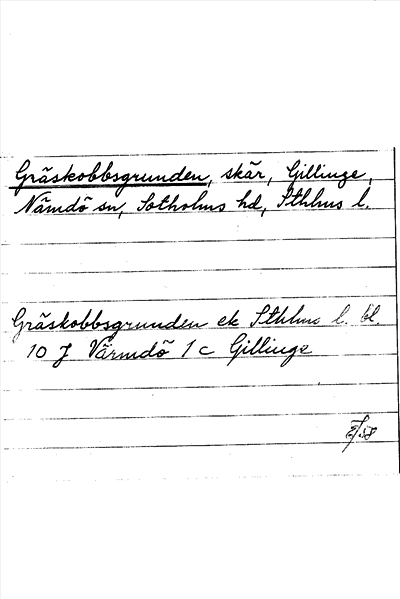 Gräskobbsgrunden, skär, Gillinge,
Nämdö sn, Sotholms hd, Sthlms l.
Gräskobbsgrunden ek Sthlms l. bl.
10 J Värmdö 1 c Gillinge